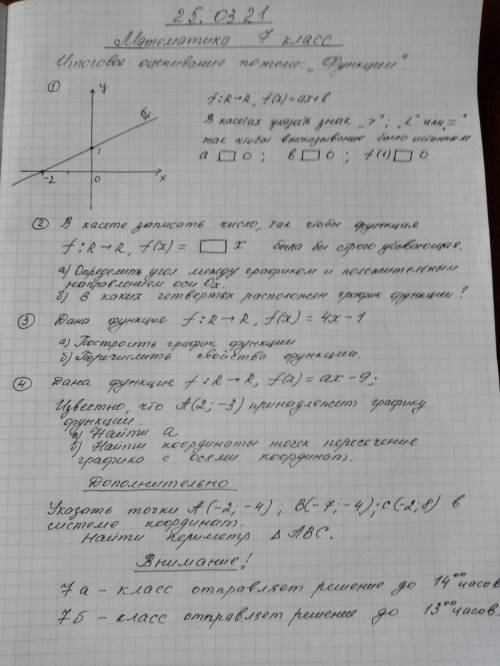 25.03.21
Математика 7 класс
Итоговое оценивание по теме: „Функции".
① y
Gf
1
-2 0 x
f: R→R, f(x)=ax+b
В касетах указать знак „>"; „<" или „="
так чтобы высказывание было истинным
a □ 0; b □ 0; f(1) □ 0
② В касете записать число, так чтобы функция
f: R→R, f(x) = □ x была бы строго убывающая.
а) Определить угол между графиком и положительным
направлением оси Ox.
б) В каких четвертях расположен график функции?
③ Дана функция f: R→R, f(x) = 4x-1
а) Построить график функции
б) Перечислить свойства функции.
④ Дана функция f: R→R, f(x) = ax-9;
Известно, что A(2; -3) принадлежит графику
функции.
а) Найти a
б) Найти координаты точек пересечение
графика с осями координат.
Дополнительно
Указать точки A(-2; -4); B(-7; -4); C(-2; 8) в
системе координат.
Найти периметр Δ ABC.
Внимание!
7 а - класс отправляет решение до 14⁰⁰ часов
7 б - класс отправляет решение до 13⁰⁰ часов.